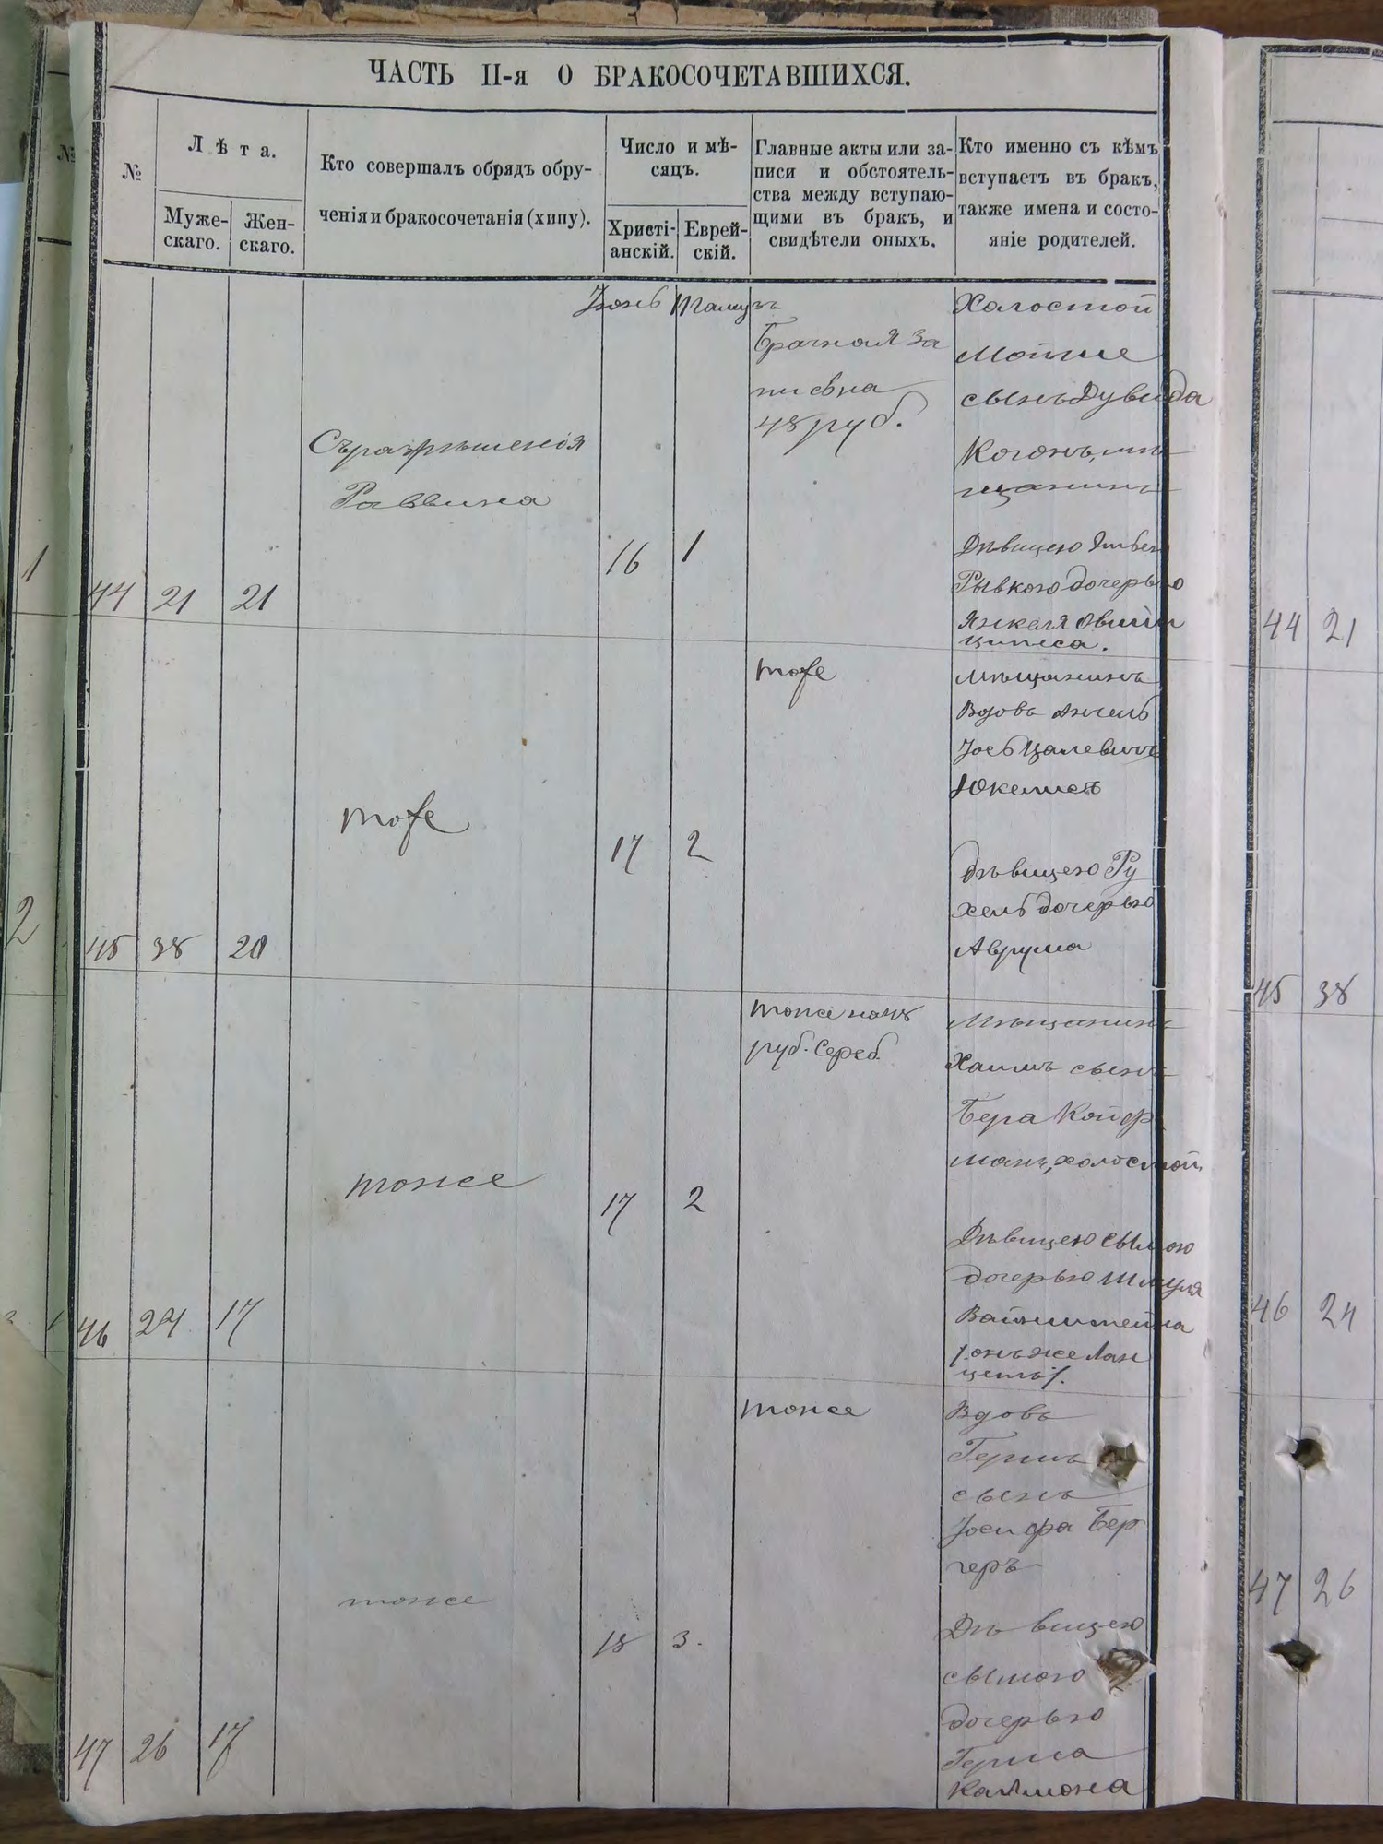 ЧАСТЬ II-я О БРАКОСОЧЕТАВШИХСЯ.
№
№
Лѣта.
Муже-
скаго.
Жен-
скаго.
Кто совершалъ обрядъ обру-
ченія и бракосочетанія (хипу).
Число и мѣ-
сяцъ.
Христі-
анскій.
Еврей-
скій.
Главные акты или за-
писи и обстоятель-
ства между вступаю-
щими въ бракъ, и
свидѣтели оныхъ.
Кто именно съ кѣмъ
вступаетъ въ бракъ,
также имена и состо-
яніе родителей.
1
44 21 21
Съ разрѣшенія
Раввина
Іюнь Тамузъ
16 1
Брачная за
писька
48 руб.
Холостой
Мойше
сынъ Дувида
Когонъ, мѣ
щанинъ
Дѣвицею
Рывкою дочерью
Янкеля
44 21
2
45 38 20
тоже
17 2
тоже
Мѣщанинъ
Вдовъ Анчель
Іось
Юкелисъ
дѣвицею Ру
хель дочерью
Аврума
45 38
46 24 17
тоже
17 2
тоже на 48
руб. сереб.
Мѣщанинъ
Хаимъ сынъ
Бера Койф
манъ, холостой
Дѣвицею Сымою
дочерью Шмуля
Вайнштейна
/онъ же Лан
цетъ/.
46 24
47 26 17
тоже
18 3.
тоже
Вдовъ
Гершъ
сынъ
Іосифа Бер
геръ
Дѣвицею
Сымою
дочерью
Герша
Калмона
47 26